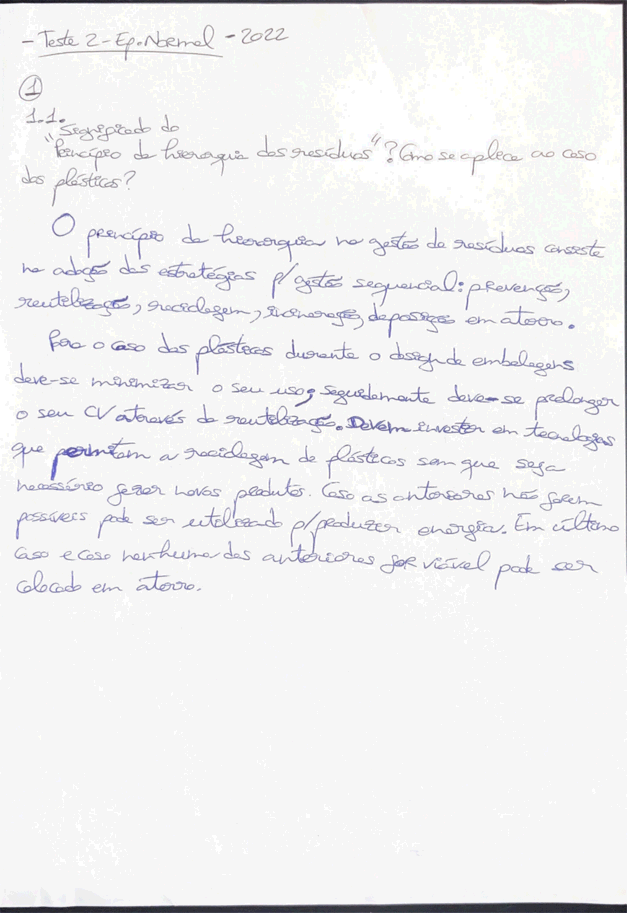 - Teste 2 - Ep. Normal - 2022
1
1.1.
"Significado do
"Princípio da hieraquia dos resíduos"? Como se aplica ao caso
dos plásticos?
O princípio da hierarquia na gestão de resíduos consiste
na adoção das estratégias p/ gestão sequencial: prevenção,
reutilização, reciclagem, incineração, deposição em aterro.
Para o caso dos plásticos durante o design de embalagens
deve-se minimizar o seu uso; seguidamente deve-se prolongar
o seu CV através da reutilização. Devem investir em tecnologias
que permitam a reciclagem de plásticos sem que seja
necessário gerar novos produtos. Caso as anteriores não forem
possíveis pode ser utilizado p/ produzir energia. Em último
caso e caso nenhuma das anteriores for viável pode ser
colocado em aterro.